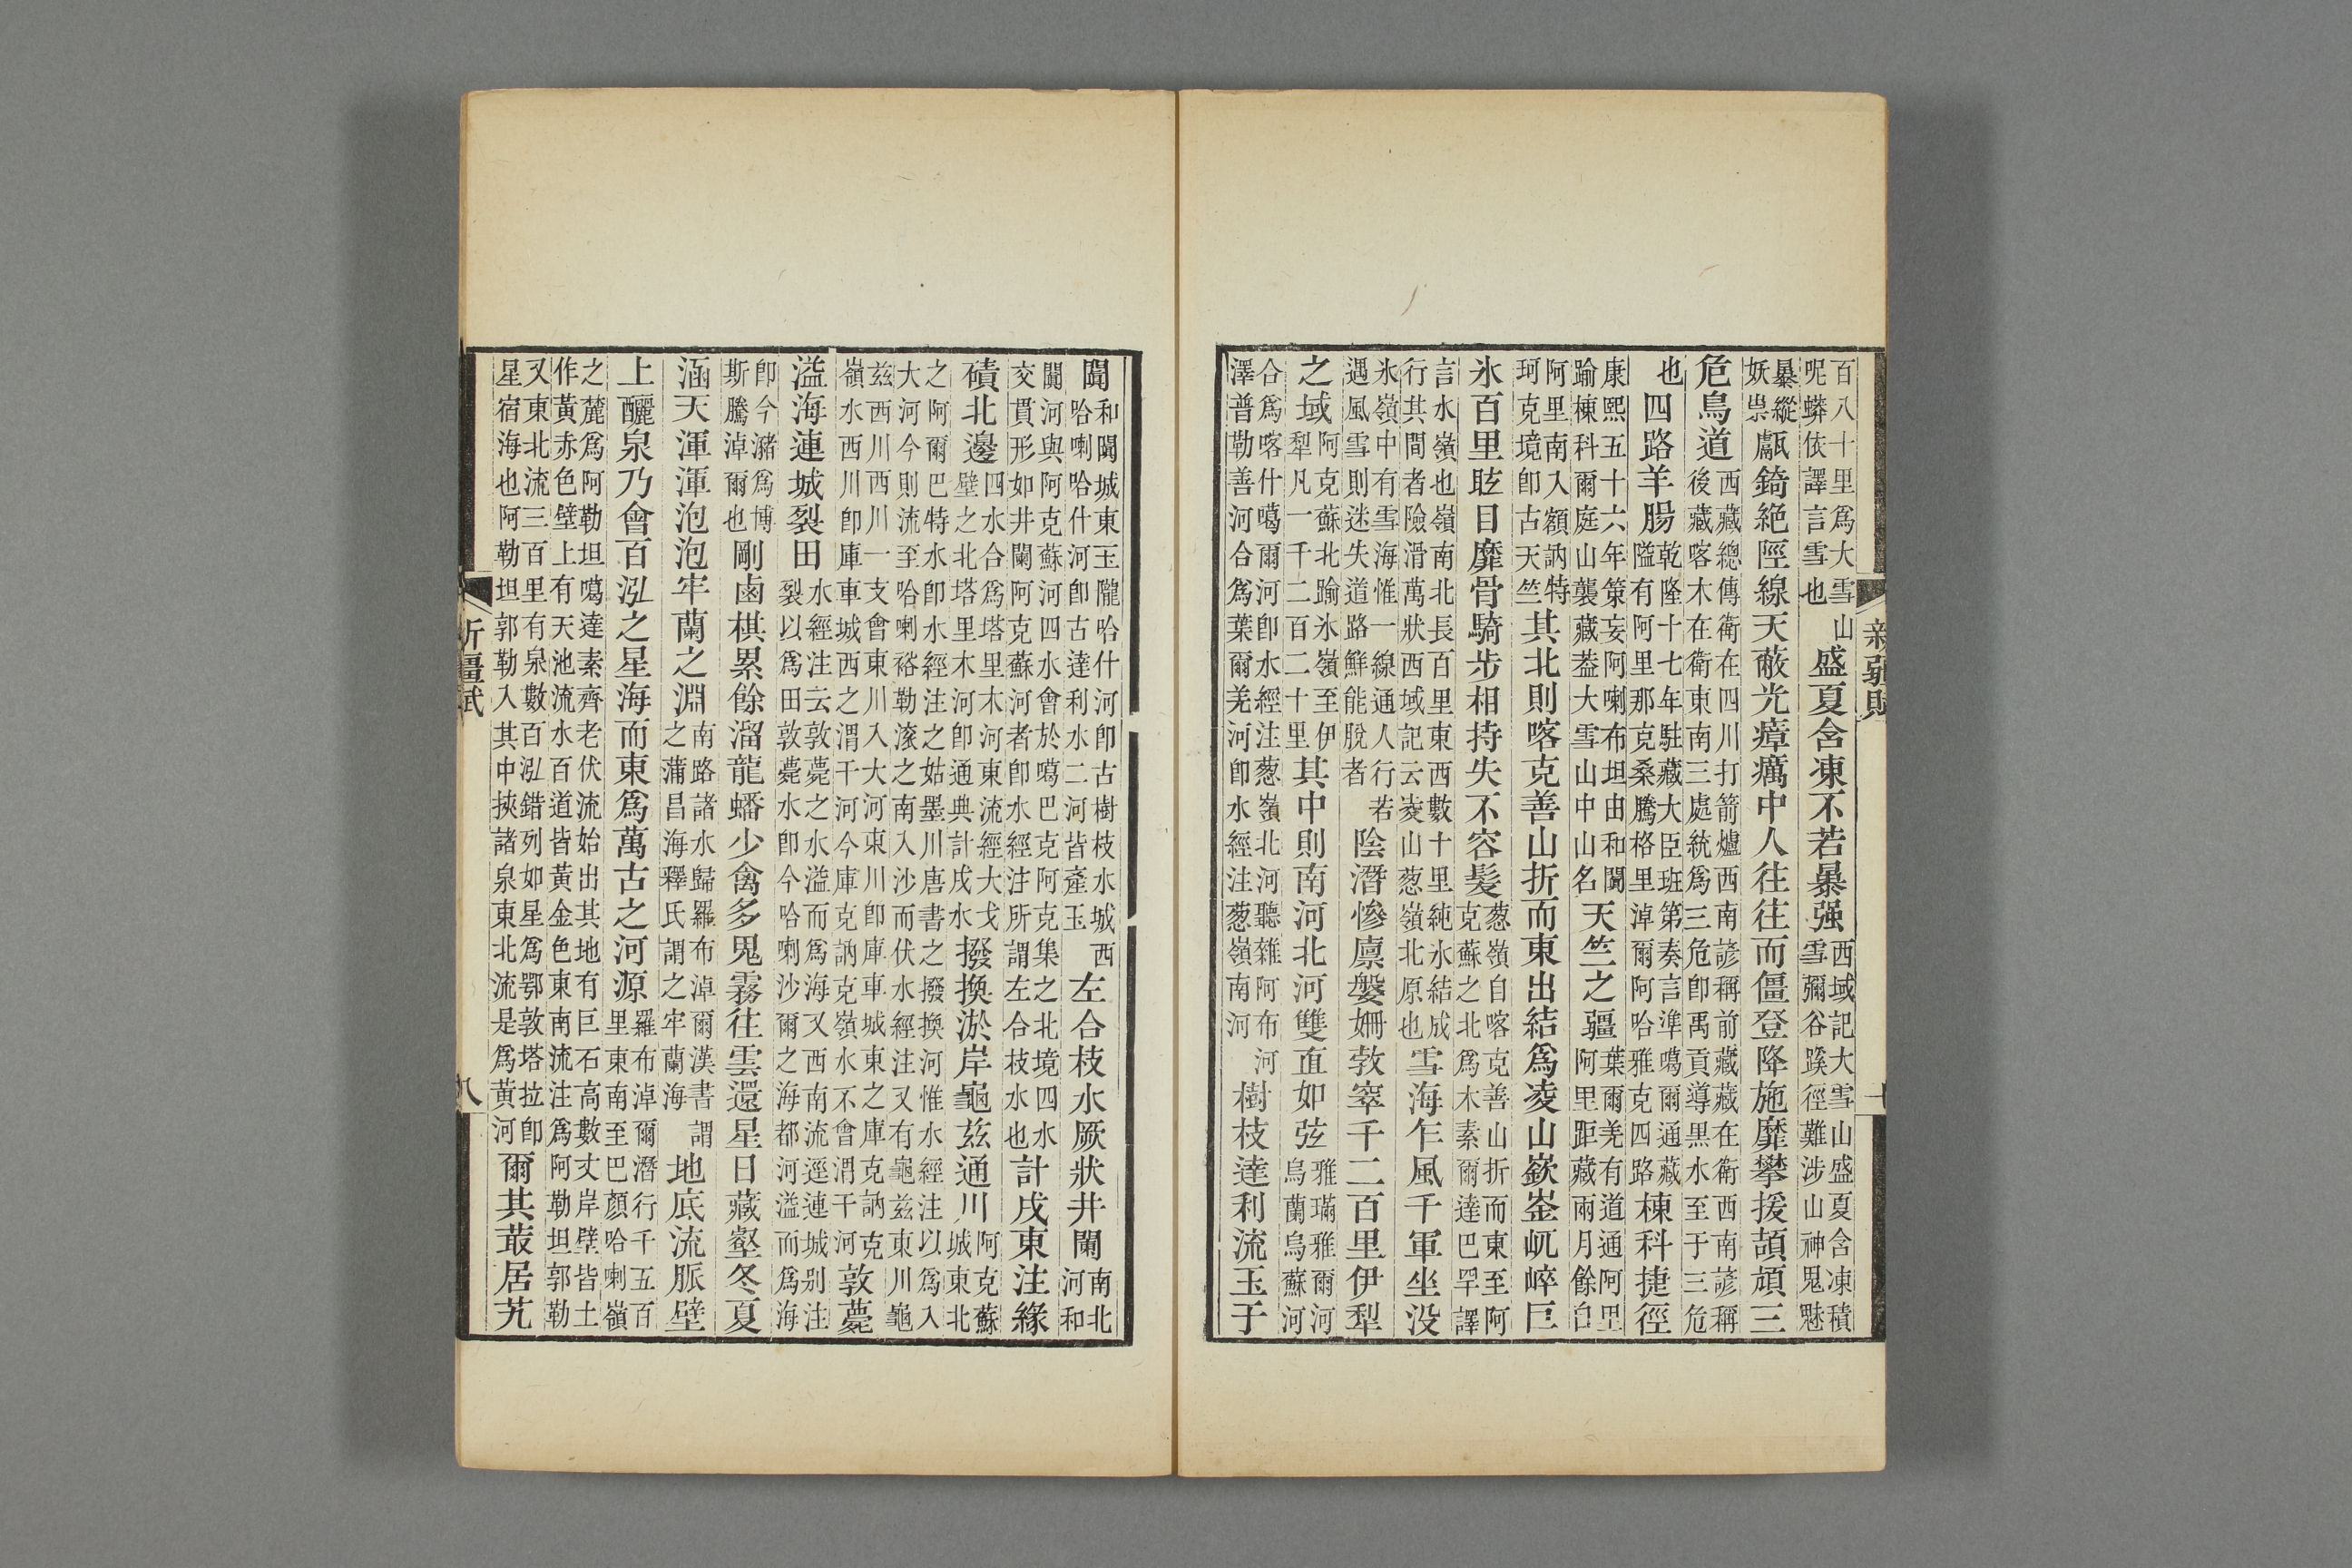 百八十里爲大雪山
呢蟒依譯言雪也
盛夏含凍不若暴强
西域記大雪山盛夏含凍積
雪彌谷蹊徑難涉山神鬼魅
暴縱
妖祟
甗錡絶陘線天蔽光瘴癘中人往往而僵登降施靡攀援頡頏三
危鳥道
西藏總傳衛在四川打箭爐西南諺稱前藏藏在衛西南諺稱
後藏喀木在衛東南三處統爲三危卽禹貢導黑水至于三危
也
四路羊腸
乾隆十七年駐藏大臣班第奏言準噶爾通藏
隘有阿里那克桑騰格里淖爾阿哈雅克四路
棟科捷徑
康熙五十六年策妄阿喇布坦由和闐
踰棟科爾庭山襲藏葢大雪山中山名
天竺之疆
葉爾羌有道通阿里
阿里距藏兩月餘自
阿里南入額訥特
珂克境卽古天竺
其北則喀克善山折而東出結爲凌山嶔崟屼崪巨
氷百里眩日靡骨騎步相持失不容髮
葱嶺自喀克善山折而東至阿
克蘇之北爲木素爾達巴罕譯
言氷嶺也嶺南北長百里東西數十里純氷結成
行其間者險滑萬狀西域記云凌山葱嶺北原也
雪海乍風千軍坐没
氷嶺中有雪海惟一線通人行若
遇風雪則迷失道路鮮能脫者
陰潛慘廩媻姍敦窣千二百里伊犁
之域
阿克蘇北踰氷嶺至伊
犁凡一千二百二十里
其中則南河北河雙直如弦
雅璊雅爾河
烏蘭烏蘇河
合爲喀什噶爾河卽水經注葱嶺北河聽雜阿布河
澤普勒善河合爲葉爾羌河卽水經注葱嶺南河
樹枝達利流玉于
新疆賦
闐
和闐城東玉隴哈什河卽古樹枝水城西
哈喇哈什河卽古達利水二河皆產玉
左合枝水厥狀井闌
南北
河和
闐河與阿克蘇河四水會於噶巴克阿克集之北境四水
交貫形如井闌阿克蘇河者卽水經注所謂左合枝水也
計戍東注緣
磧北邊
四水合爲塔里木河東流經大戈
壁之北塔里木河卽通典計戍水
撥換淤岸龜茲通川
阿克蘇
城東北
之阿爾巴特水卽水經注之姑墨川唐書之撥換河惟水經注以爲入
大河今則流至哈喇裕勒滾之南入沙而伏水經注又有龜茲東川龜
茲西川西川一支會東川入大河東川卽庫車城東之庫克訥克
嶺水西川卽庫車城西之渭干河今庫克訥克嶺水不會渭干河
敦薨
溢海連城裂田
水經注云敦薨之水溢而爲海又西南流逕連城别注
裂以爲田敦薨水卽今哈喇沙爾之海都河溢而爲海
卽今瀦爲博
斯騰淖爾也
剛鹵棋累餘溜龍蟠少禽多鬼霧往雲還星日藏壑冬夏
涵天渾渾泡泡牢蘭之淵
南路諸水歸羅布淖爾漢書謂
之蒲昌海釋氏謂之牢蘭海
地底流脈壁
上釃泉乃會百泓之星海而東爲萬古之河源
羅布淖爾潛行千五百
里東南至巴顏哈喇嶺
之麓爲阿勒坦噶達素齊老伏流始出其地有巨石高數丈岸壁皆土
作黃赤色壁上有天池流水百道皆黃金色東南流注爲阿勒坦郭勒
又東北流三百里有泉數百泓錯列如星爲鄂敦塔拉卽
星宿海也阿勒坦郭勒入其中挾諸泉東北流是爲黃河
爾其蕞居艽
新疆賦
八